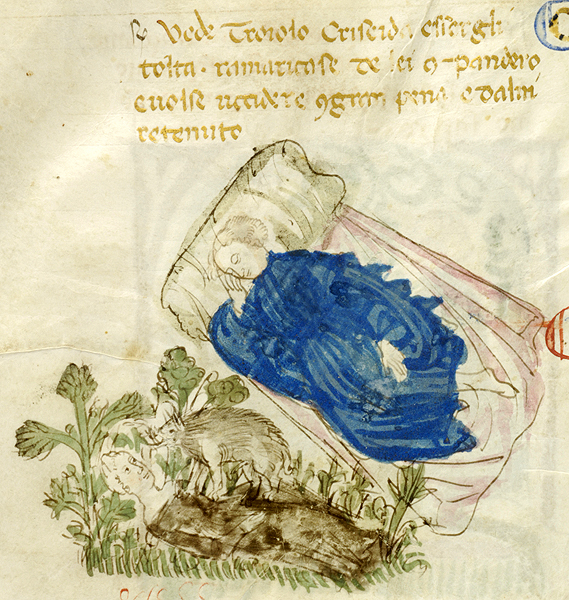 Vede Troiolo Criseida essergli
tolta · ramaricase de lei ꝯ pandero
e uolse uccidere ꝯ gran pena e da lui
retenuto